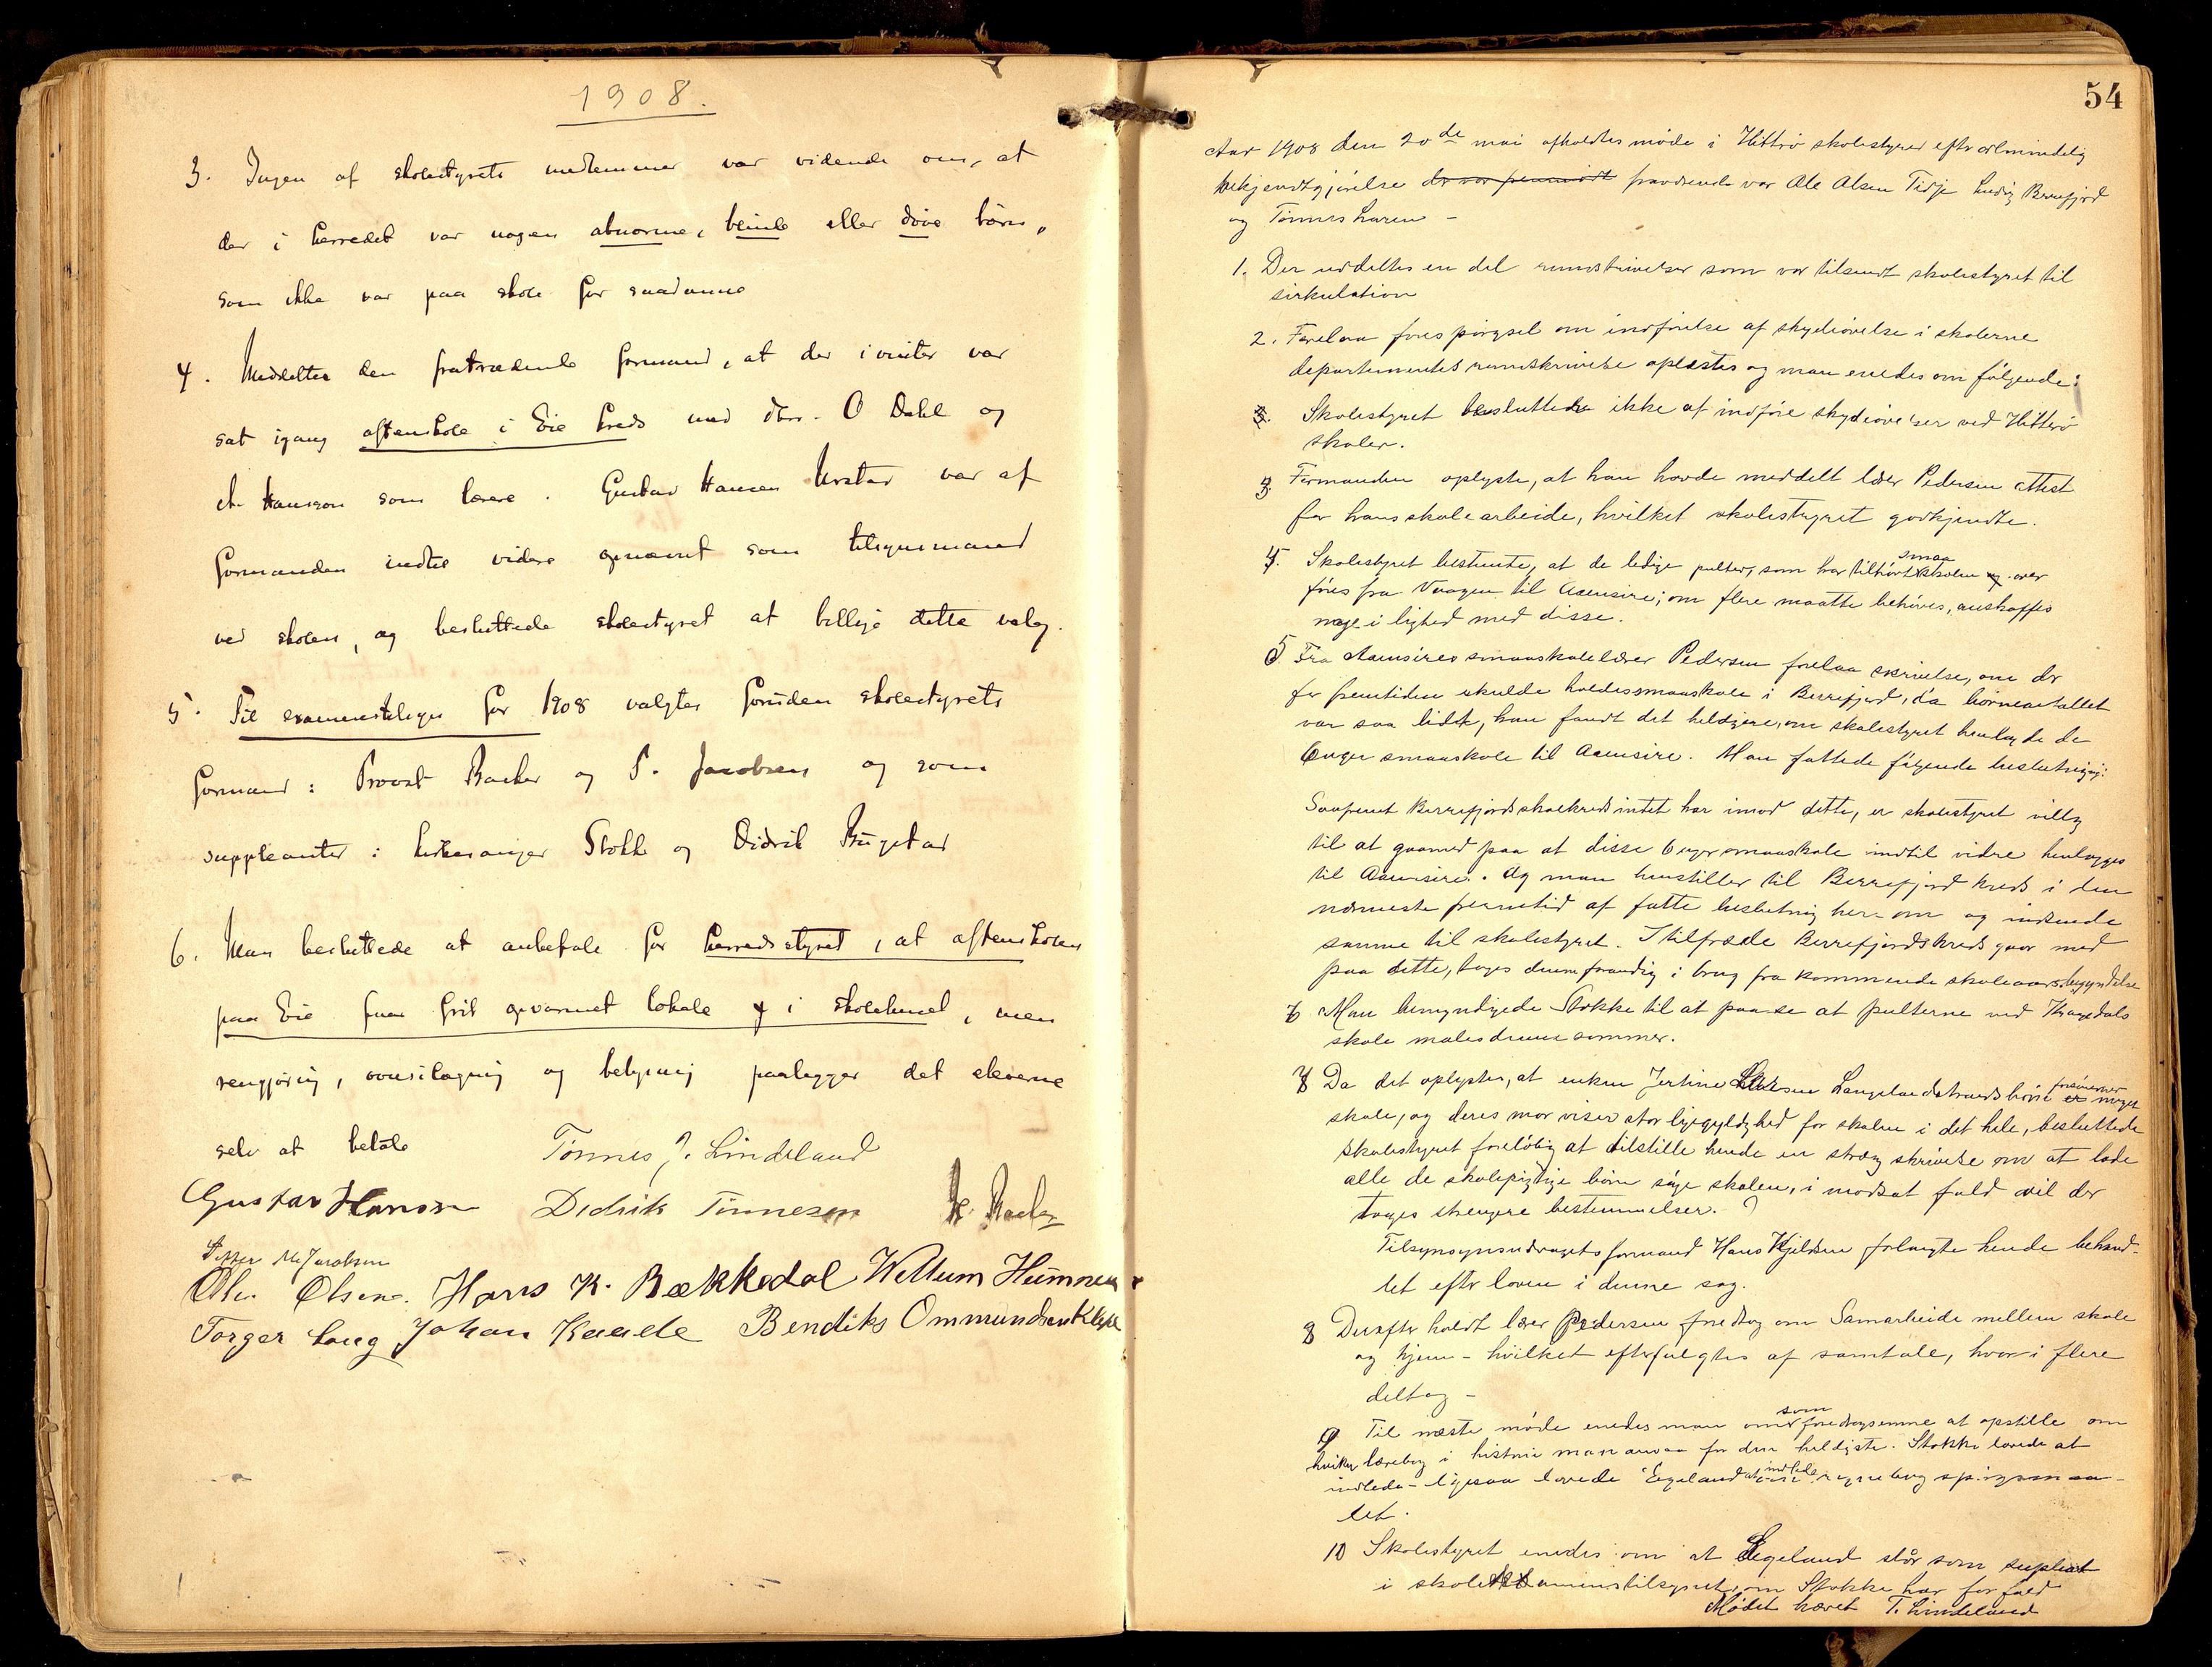 1908.
3. Ingen af skolestyrets medlemmer var vidende om, at
der i herredet var nogen abnorme, blinde eller döve börn,
som ikke var paa skole for saadanne
4. Meddeltes den fratrædende formand, at der i vinter var
sat igang aftenskole i Eie kreds med dhrr. O Dahl og
A. Hanson som lærere. Gustav Hansen Urstad var af
formanden indtil videre opnævnt som tilsynsmand
ved skolen, og besluttede skolestyret at billige dette valg.
5. Til examenstilsyn for 1908 valgtes foruden skolestyrets
formand: Provst Barker og P. Jacobsen og som
suppleanter: kirkesanger Stokke og Didrik Rügstad
6. Man besluttede at anbefale for herredsstyret, at aftenskolen
paa Eie faar frit opvarmet lokale i skolehuset, men
rengjöring, ovnsilægning og belysning paalægger det eleverne
selv at betale Tönnes J. Lindeland
Gustav Hanson Didrik Tönnesen
Petter M. Jacobsen
Ole Olsen. Hans K. Bækkedal Wellum Hummer
Torger Laug Johan Kaade Bendiks Ommundsen Kleve
54
Aar 1908 den 20de mai afholdtes möde i Hitterö skolestyre efter almindelig
bekjendtgjörelse fraværende var Ole Olsen Tidje Ludvig Berrefjord
og Tönnes Larsen –
1. Der uddeltes en del rundskrivelser som var tilsendt skolestyret til
sirkulation
2. Forelaa forespörgsel om indförelse af skydeövelse i skolerne
departementets rundskrivelse oplæstes og man enedes om fölgende:
Skolestyret besluttede ikke at indföre skydeövelser ved Hitterö
skoler.
3 Formanden oplyste, at han havde meddelt lærer Pedersen attest
for hans skolearbeide, hvilket skolestyret godkjendte.
4. Skolestyret bestemte, at de ledige pulter, som har tilhört smaaskolen over
föres fra Vaagen til Aaensire; om flere maatte behöves, anskaffes
nøge i lighed med disse.
5 Fra Aaensires smaaskolelærer Pedersen forelaa skrivelse, om der
for fremtiden skulde holdes smaaskole i Berrefjord, da börneantallet
var saa lidet, han fandt det heldigere, om skolestyret henlagde de
6 uger smaaskole til Aaensire. Man fattede fölgende beslutning:
Saafremt Berrefjords skolekreds intet har imod dette, er skolestyret villig
til at gaa med paa at disse 6 uger smaaskole indtil vidre henlægges
til Aaensire. Og man henstiller til Berrefjord kreds i den
nærmeste fremtid at fatte beslutning her-om og indsende
samme til skolestyret. I tilfælde Berrefjords kreds gaar med
paa dette, tages denne forandring i brug fra kommende skoleaars begyndelse
6 Man bemyndigede Stokke til at paase at pulterne ved Kragedals
skole males denne sommer.
7 Da det oplystes, at enken Jertine Larsen Langelandstrands börn forsömmer noget
skole, og deres mor viser stor ligegyldighed for skolen i det hele, besluttede
skolestyret forelöbig at tilstille hende en streng skrivelse om at lade
alle de skolepligtige börn söge skolen, i modsat fald vil der
tages strengere bestemmelser.
Tilsynsudvagets formand Hans Kjeldsen forlangte hende behand-
let efter loven i denne sag.
8 Derefter holdt lærer Pedersen foredrag om Samarbeide mellem skole
og hjem – hvilket efterfulgtes af samtale, hvor-i flere
deltog –
9 Til næste möde enedes man om som foredragsemne at opstille om
hvilken lærebog i historie man ansaa for den heldigste. Stokke lovede at
indlede – ligesaa lovede Egeland at indlede regnebog spörgsmaa-
let.
10 Skolestyret enedes om at Egeland står som suppleat
i skoleexamenstilsynet, om Stokke har forfald
Mödet hævet T. Lindeland